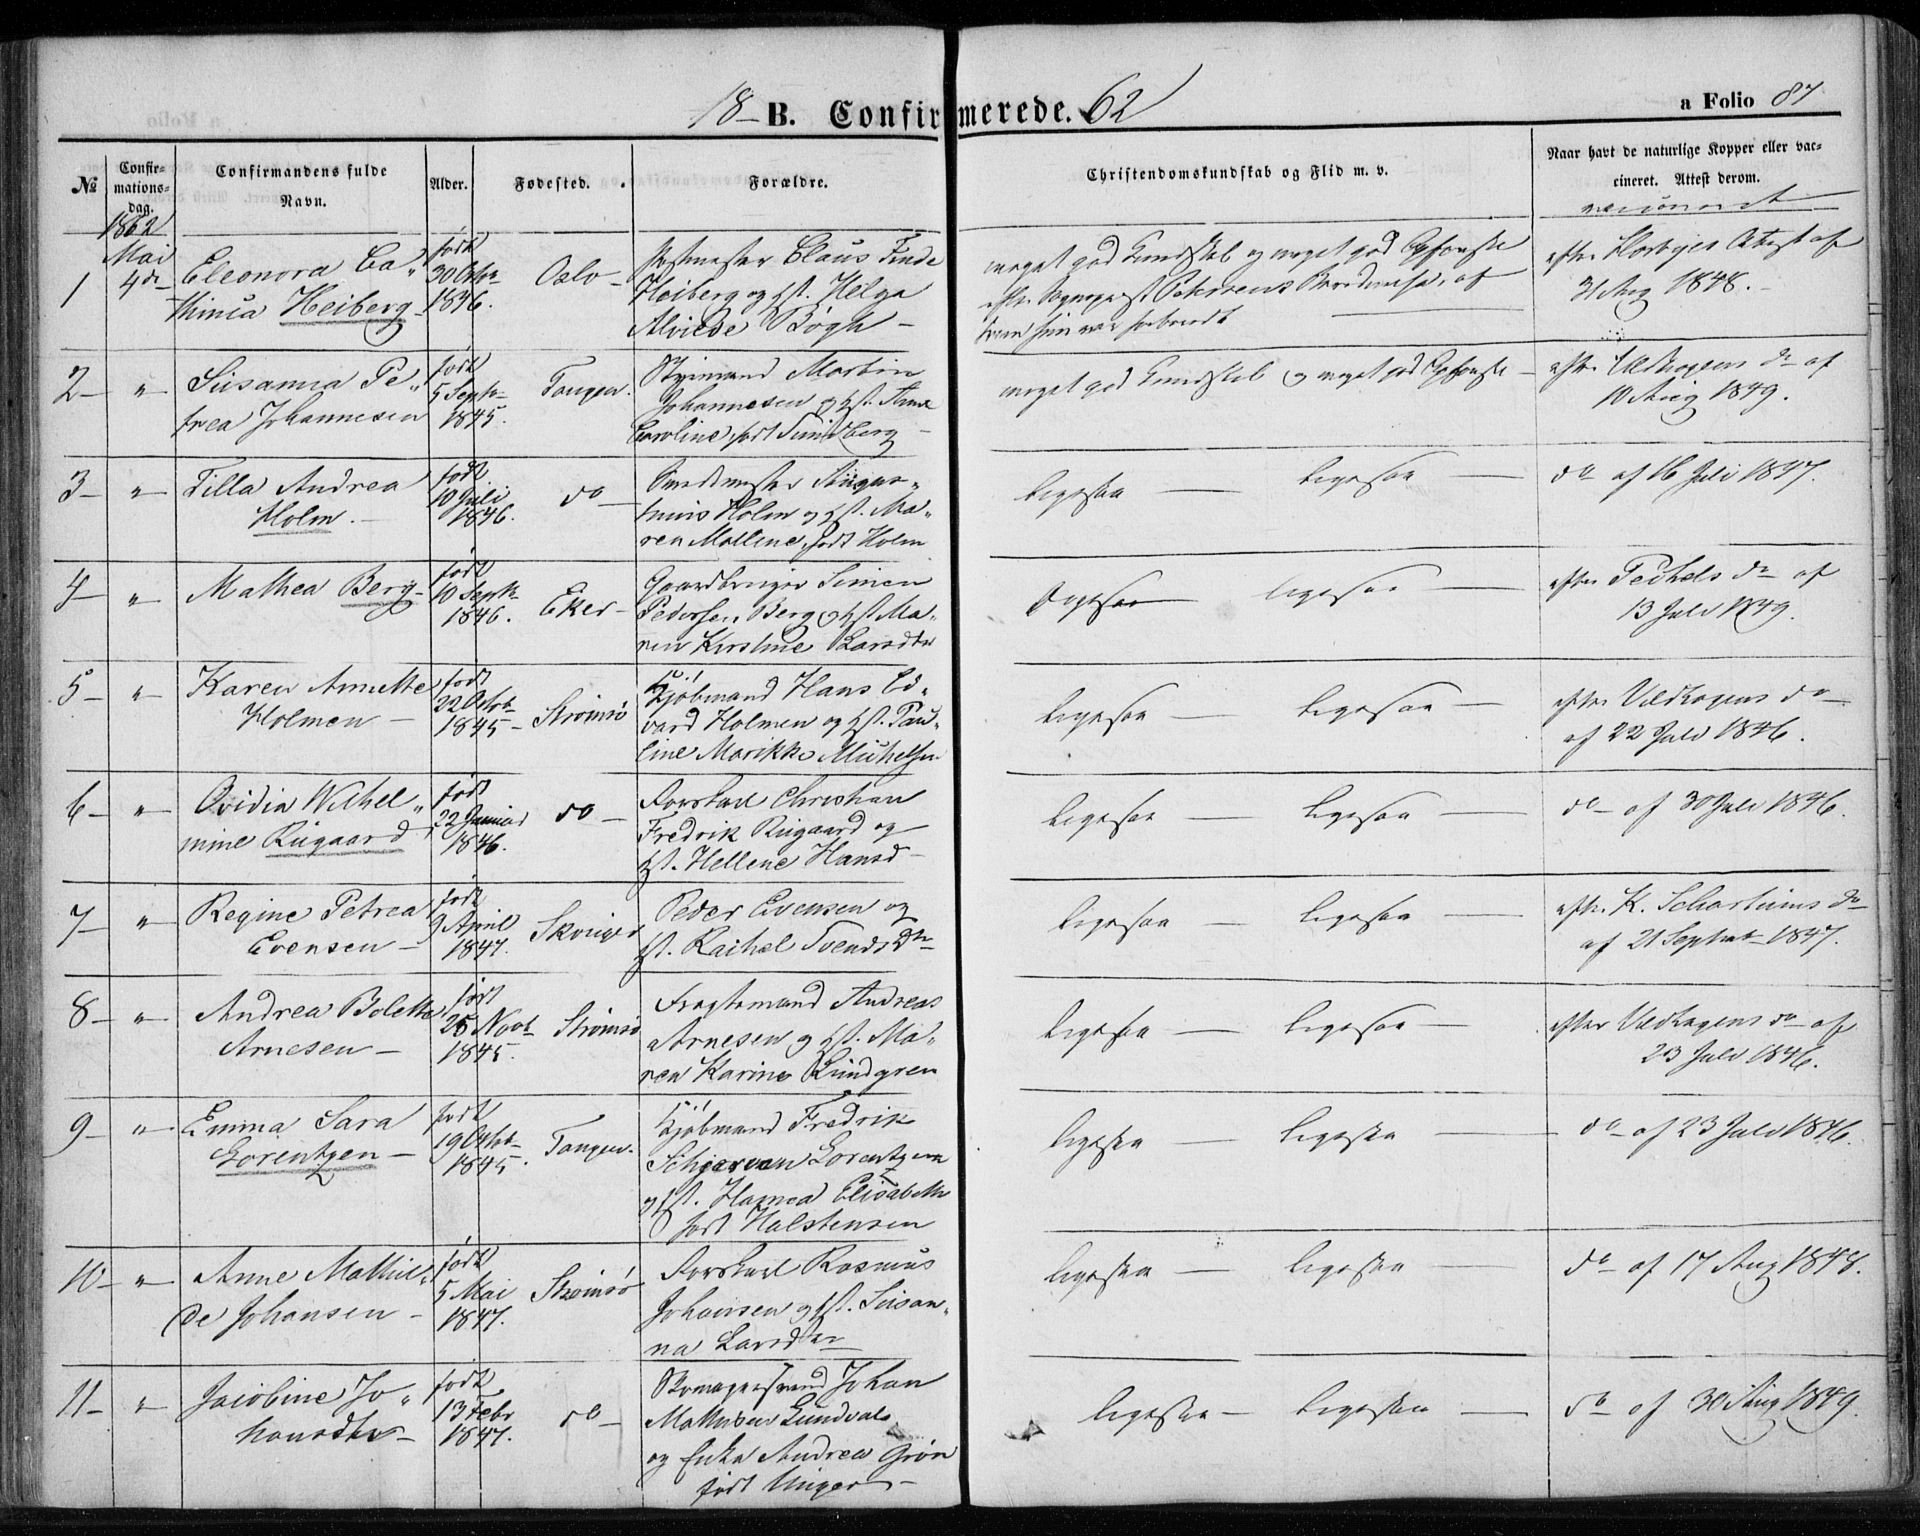 18 - B. Confirmerede. 62
a Folio 87
№
Confir-
mations-
dag.
Confirmandens fulde
Navn.
Alder.
Fødested.
Forældre.
Christendomskundskab og Flid m. v.
Naar havt de naturlige Kopper eller vac-
cineret. Attest derom.
1862
Mai
1
4de
Eleonora Ca"
thinca Heiberg
født
30 Octbr
1846.
Oslo
Claus Finde
Heiberg og Hst. Helga
Alvilde Bøgh
meget god Kundskab og meget god Opførsel
hun var forberedt
efter Attest af
31 Aug 1848.
2 -
"
Susanna Pe"
trea Johannesen
født
5 Septbr
1845.
Tangen.
Styrmand Martin
Johannesen og Hst. Anne
Caroline, født Sundberg
meget god Kundskab og meget god Opførsel
efter Uldhagens do af
10 Aug 1849.
3 -
"
Tilla Andrea
Holm.
født
10 Juli
1846.
do
Holm og Hst. Ma"
ren Mallene, født Holm
ligesaa - ligesaa -
do af 16 Juli 1847.
4 -
"
Mathea Berg
født
10 Septbr
1846.
Eker -
Gaardbruger Simen
Pedersen Berg og Hst. Ma"
ren Kirstine Larsdtr
ligesaa - ligesaa -
efter Pechels do af
13 Juli 1849.
5 -
"
Karen Annette
Holmen -
født
22 Octbr
1845 -
Strømsø
Kjøbmand Hans Ed"
vard Holmen og Hst. Pau"
line Marikke Michelsen
ligesaa - ligesaa -
efter Uldhagens do
af 22 Juli 1846.
6 -
"
Ovidia Wilhel"
mine Riigaard
født
22 Januar
1846.
do -
Forskarl Christian
Fredrik Riigaard og
Hst. Hellene Hansd
ligesaa - ligesaa -
do - af 30 Juli 1846.
7 -
"
Regine Petrea
Evensen -
født
9 April
1847.
Skouger
Peder Evensen og
Hst. Rachel Svendsdtr
ligesaa - ligesaa -
efter K. Schartums do
af 21 Septbr 1847.
8 -
"
Andrea Bolette
Arnesen -
født
25 Novbr
1845.
Strømsø
Fragtemand Andreas
Arnesen og Hst. Ma"
ren Karine Lundgren
ligesaa - ligesaa -
efter Uldhagens do af
23 Juli 1846.
9 -
"
Emma Sara
Lorentzen -
født
19 Octbr
1845.
Tangen.
Kjøbmand Fredrik
Schjerven Lorentzen
og Hst. Hanna Elisabeth
født Halstensen
ligesaa - ligesaa -
do - af 23 Juli 1846.
10 -
"
Anne Mathil"
de Johansen -
født
5 Mai
1847.
Strømsø
Forskarl Rasmus
Johansen og Hst. Susan"
na Larsdtr
ligesaa - ligesaa -
do af 17 Aug 1848.
11 -
"
Jacobine Jo"
hansdtr -
født
13 Febr
1847.
do -
Johan
Mathisen Sundvals
og Enke Andrea Grøn
født Unger -
ligesaa - ligesaa -
do af 30 Aug 1849.